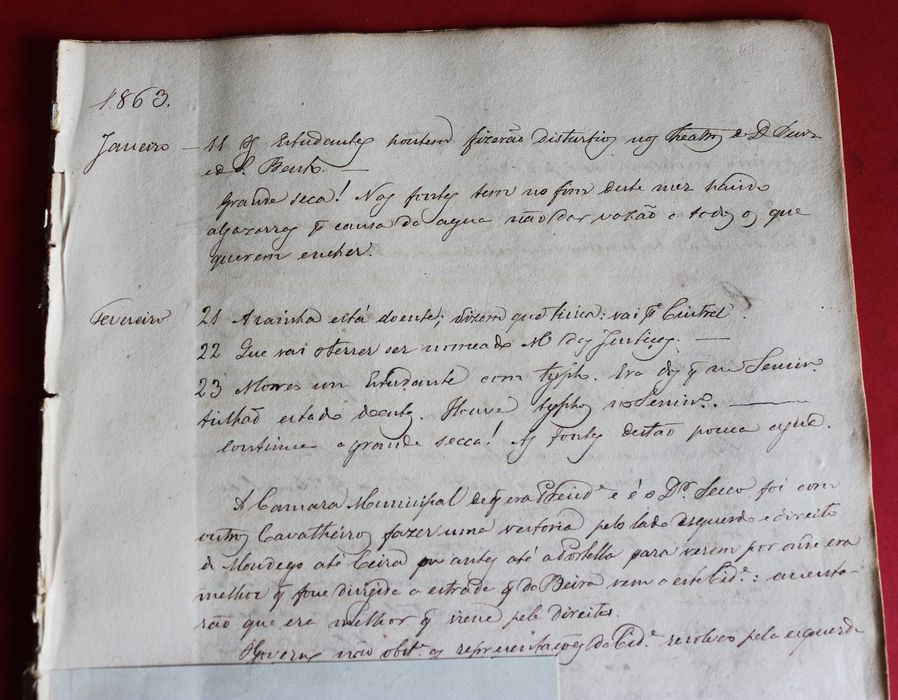 1863.
Janeiro — 11 Os Estudantes hontem fizerão disturbios nos theatros de D. Luiz
e de S. Bento. —
Grande seca! Nas fontes tem no fim deste mez havido
algazarras pr causa da agua não dar vazão a todos os que
querem encher.
Fevereiro 21 A rainha está doente; dizem que tisica: vai pª
22 Que vai ser nomeado Mº das Justiças. —
23 Morreo um Estudante com typho. Era dos q no Semin.
tinhão estado doentes. Houve typhos no Semin. —
Continua a grande secca! As fontes deitão pouca agua.
A Camara Municipal de q era Presid.e e é o Dr. Secco foi com
outros Cavalheiros fazer uma vestoria pelo lado esquerdo e direito
do Mondego até Ceira ou antes até a Portella para verem por onde era
melhor q fosse dirigida a estrada q da Beira vem a esta Cid.e: assenta-
rão que era melhor q viesse pela direita.
O Governo não obst.e as representações da Cid.e resolveo pela esquerda